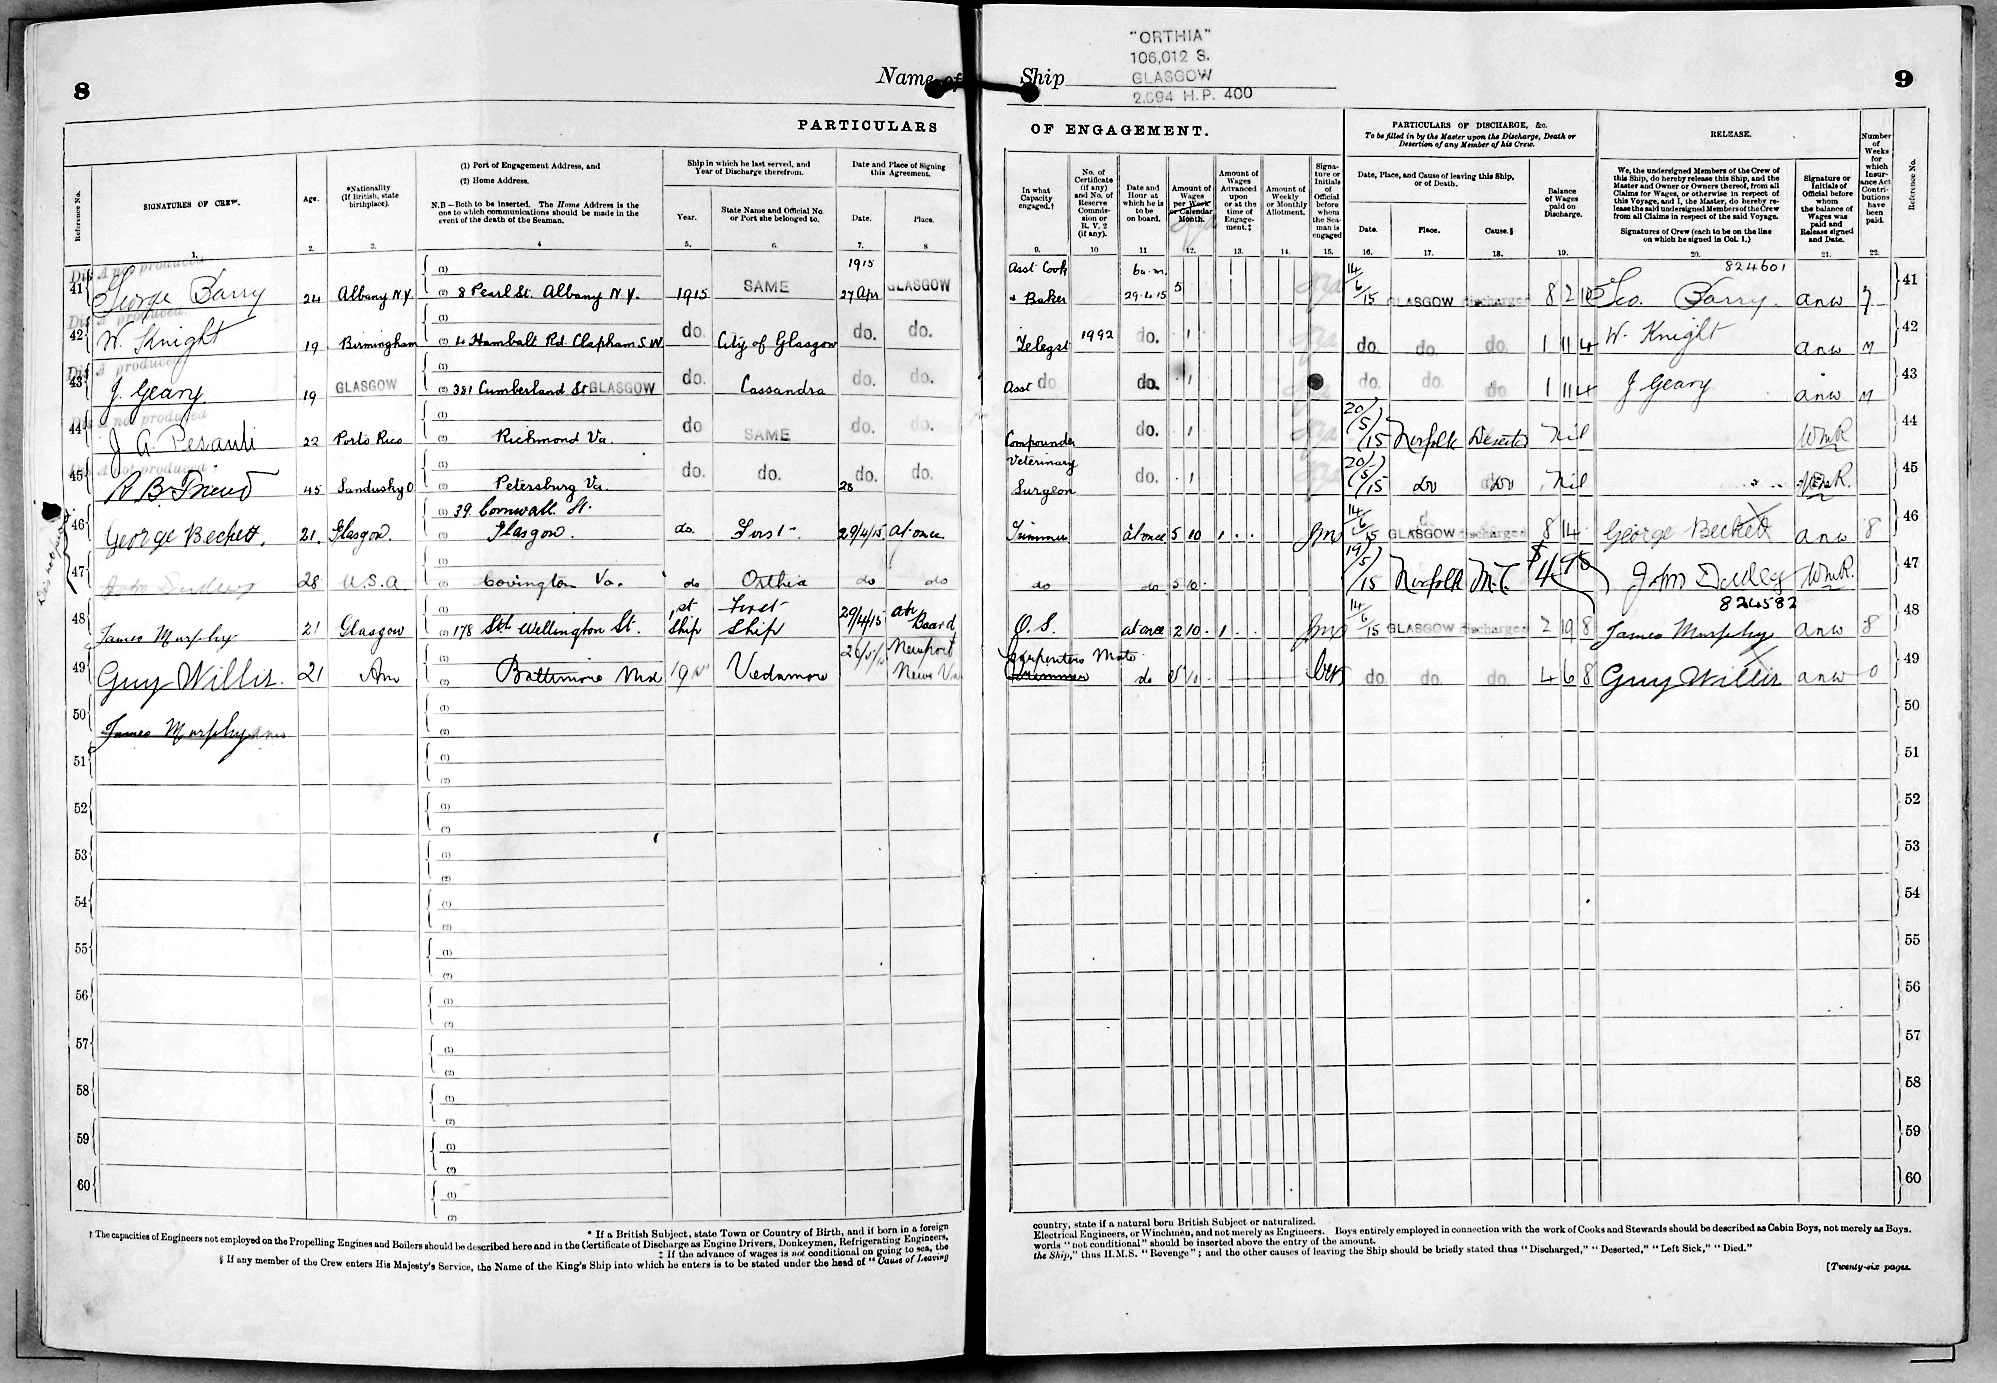 8
Name of Ship
"ORTHIA"
106,012 S.
GLASGOW
2,694 H.P. 400
9
PARTICULARS OF ENGAGEMENT.
PARTICULARS OF DISCHARGE, &c.
To be filled in by the Master upon the Discharge, Death or
Desertion of any Member of his Crew.
RELEASE.
Reference No.
SIGNATURES OF CREW.
1.
Age.
2.
*Nationality
(If British, state
birthplace).
3.
(1) Port of Engagement Address, and
(2) Home Address.
N.B—Both to be inserted. The Home Address is the
one to which communications should be made in the
event of the death of the Seaman.
4
Ship in which he last served, and
Year of Discharge therefrom.
Year.
5.
State Name and Official No.
or Port she belonged to.
6.
Date and Place of Signing
this Agreement.
Date.
7.
Place.
8
In what
Capacity
engaged.†
9.
No. of
Certificate
(if any)
and No. of
Reserve
Commis-
sion or
R.V. 2
(if any).
10
Date and
Hour at
which he is
to be
on board.
11
Amount of
Wages
per Week
or Calendar
Month.
12.
Amount of
Wages
Advanced
upon
or at the
time of
Engage-
ment.‡
13.
Amount of
Weekly
or Monthly
Allotment.
14.
Signa-
ture or
Initials
of
Official
before
whom
the Sea-
man is
engaged
15.
Date, Place, and Cause of leaving this Ship,
or of Death.
Date.
16.
Place.
17.
Cause.§
18.
Balance
of Wages
paid on
Discharge.
19.
We, the undersigned Members of the Crew of
this Ship, do hereby release this Ship, and the
Master and Owner or Owners thereof, from all
Claims for Wages, or otherwise in respect of
this Voyage, and I, the Master, do hereby re-
lease the said undersigned Members of the Crew
from all Claims in respect of the said Voyage.
Signatures of Crew (each to be on the line
on which he signed in Col. 1.)
20.
Signature or
Initials of
Official before
whom
the balance of
Wages was
paid and
Release signed
and Date.
21.
Number
of
Weeks
for
which
Insur-
ance Act
Contri-
butions
have
been
paid.
22.
Reference No.
41 George Barry 24 Albany N.Y. (1) (2) 8 Pearl St. Albany N.Y. 1915 SAME 1915 27 Apr GLASGOW Asst Cook & Baker 6 a.m. 29.4.15 5 14/6/15 GLASGOW discharged 8 2 824601 Geo. Barry. anw 7 41
42 W. Knight 19 Birmingham (1) (2) 4 Hambalt Rd Clapham S.W. do. City of Glasgow do. do. Telegst 1992 do. 1 do. do. do. 1 11 4 W. Knight anw M 42
43 J. Geary 19 GLASGOW (1) (2) 381 Cumberland St GLASGOW do. Cassandra do. do. Asst do. do. 1 do. do. do. 1 11 4 J Geary anw M 43
44 22 Porto Rico (1) (2) Richmond Va. do SAME do. do. Compounder do. 1 20/5/15 Norfolk Nil WmR 44
45 45 Sandusky O (1) (2) Petersburg Va. do. do. 28 do. do. Veterinary Surgeon do. 1 20/5/15 Do Do Nil 45
46 George Beckett. 21. Glasgow. (1) 39 Cornwall St. (2) Glasgow. do. First 29/4/15 At once Trimmer at once 5 10 14/6/15 GLASGOW discharged 8 14 George Beckett anw 8 46
47 28 U.S.A (1) (2) Covington Va. do Orthia do do do do 5 10 19/5/15 Norfolk M.C. John Dudley WmR. 47
48 James Murphy 21 Glasgow (1) (2) 178 Sth Wellington St. 1st Ship First Ship 29/4/15 on Board O.S. at once 2 10 14/6/15 GLASGOW discharged 2 19 8 824582 James Murphy anw 8 48
49 Guy Willis. 21 Am (1) (2) Baltimore Md 1915 Vedamore Newport News Va Carpenters Mate do 5 10 do. do. do. 4 6 8 Guy Willis anw 0 49
50 James Murphy (1) (2) 50
51 (1) (2) 51
52 (1) (2) 52
53 (1) (2) 53
54 (1) (2) 54
55 (1) (2) 55
56 (1) (2) 56
57 (1) (2) 57
58 (1) (2) 58
59 (1) (2) 59
60 (1) (2) 60
* If a British Subject, state Town or Country of Birth, and if born in a foreign country, state if a natural born British Subject or naturalized.
† The capacities of Engineers not employed on the Propelling Engines and Boilers should be described here and in the Certificate of Discharge as Engine Drivers, Donkeymen, Refrigerating Engineers, Electrical Engineers, or Winchmen, and not merely as Engineers. Boys entirely employed in connection with the work of Cooks and Stewards should be described as Cabin Boys, not merely as Boys.
‡ If the advance of wages is not conditional on going to sea, the words "not conditional" should be inserted above the entry of the amount.
§ If any member of the Crew enters His Majesty's Service, the Name of the King's Ship into which he enters is to be stated under the head of "Cause of Leaving the Ship," thus H.M.S. "Revenge"; and the other causes of leaving the Ship should be briefly stated thus "Discharged," "Deserted," "Left Sick," "Died."
[Twenty-six pages.